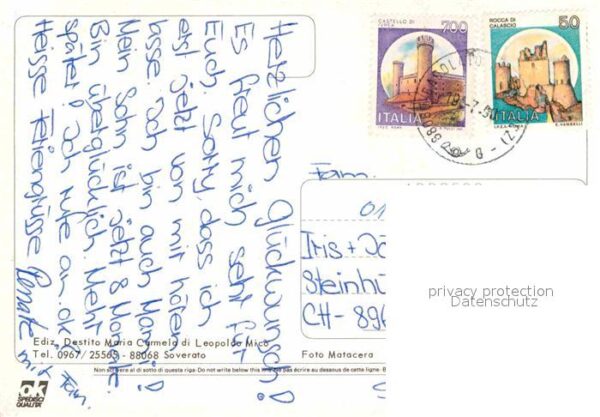 Herzlichen Glückwunsch!
Es freut mich sehr für
Euch. Sorry, dass ich
erst jetzt von mir hören
lasse. Ich bin auch Mami!
Mein Sohn ist jetzt 8 Monate.
Bin überglücklich. Mehr
später! Ich rufe an. ok?
Heisse Feriengrüsse Renate mit
Fam.
CASTELLO DI
IVREA
700
ITALIA
ROCCA DI
CALASCIO
50
ITALIA
Fam.
Iris +
Steinhü
CH-896
privacy protection
Datenschutz
Ediz. Destito Maria Carmela di Leopoldo Micò
Tel. 0967/25565 - 88068 Soverato
Foto Matacera
Non scrivere al di sotto di questa riga - Do not write below this line
OK
SPEDISCI
QUALITA'